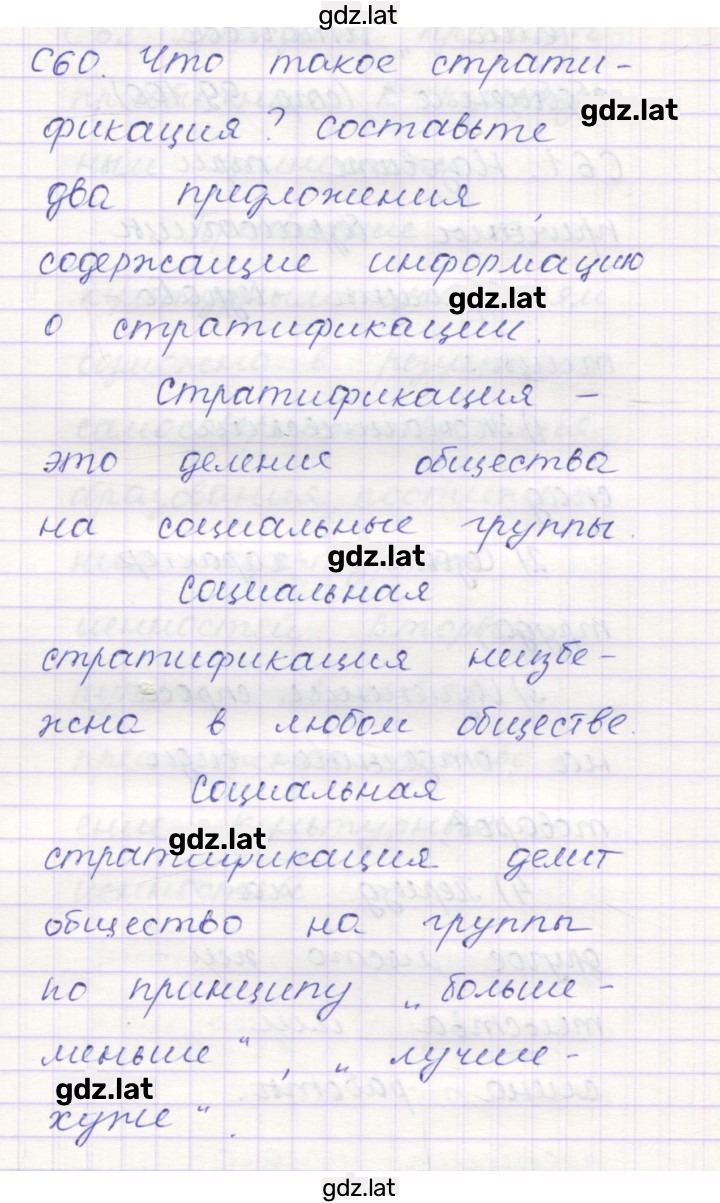 gdz.lat
С60. Что такое страти-
gdz.lat
фикация? составьте
два предложения,
содержащие информацию
gdz.lat
о стратификации.
Стратификация -
это деления общества
на социальные группы.
gdz.lat
Социальная
стратификация неизбе-
жна в любом обществе.
Социальная
gdz.lat
стратификация делит
общество на группы
по принципу „больше-
меньше“, „лучше-
gdz.lat
хуже“.
gdz.lat